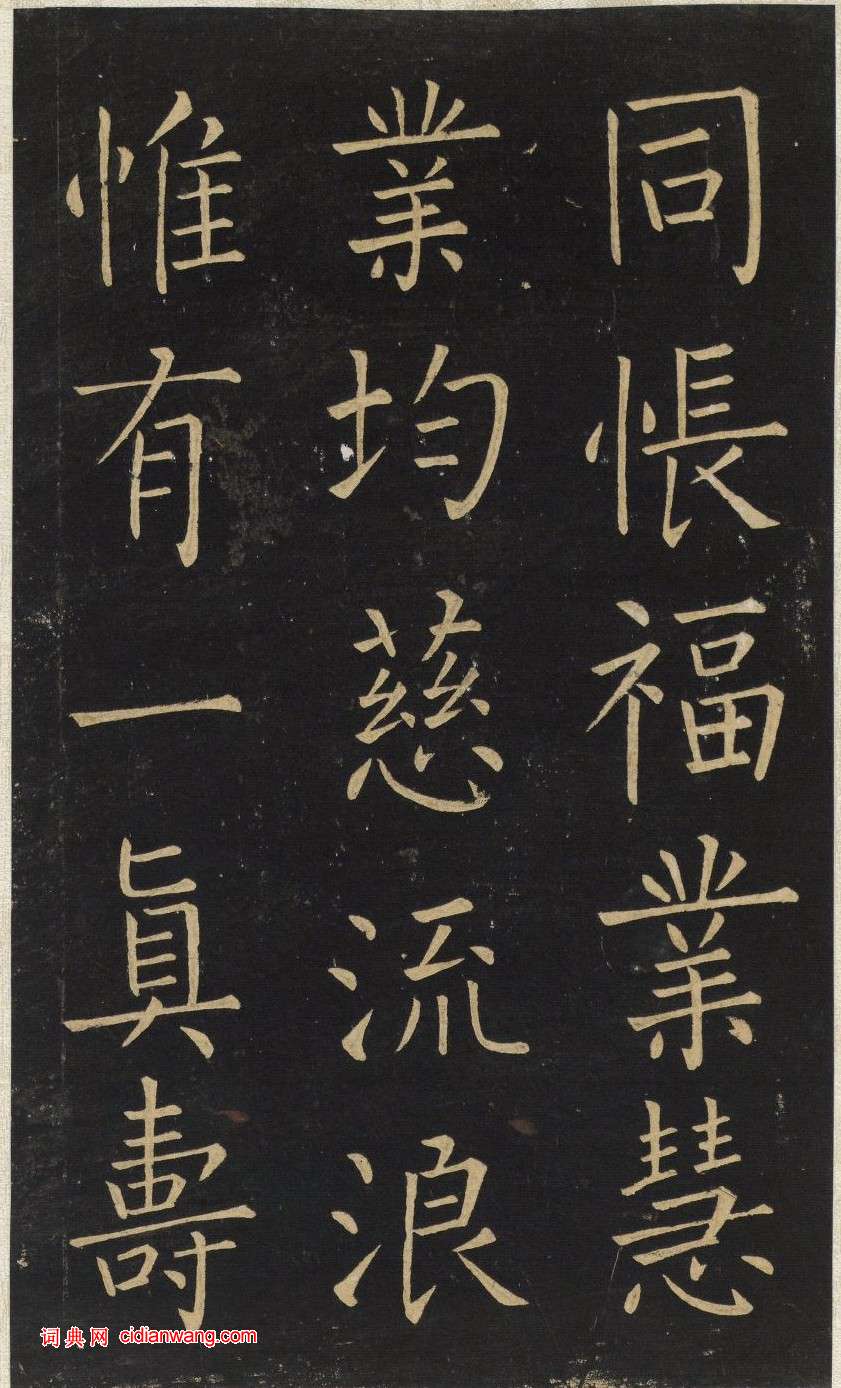 同悵福業慧
業均慈流浪
惟有一真壽
词典网 cidianwang.com